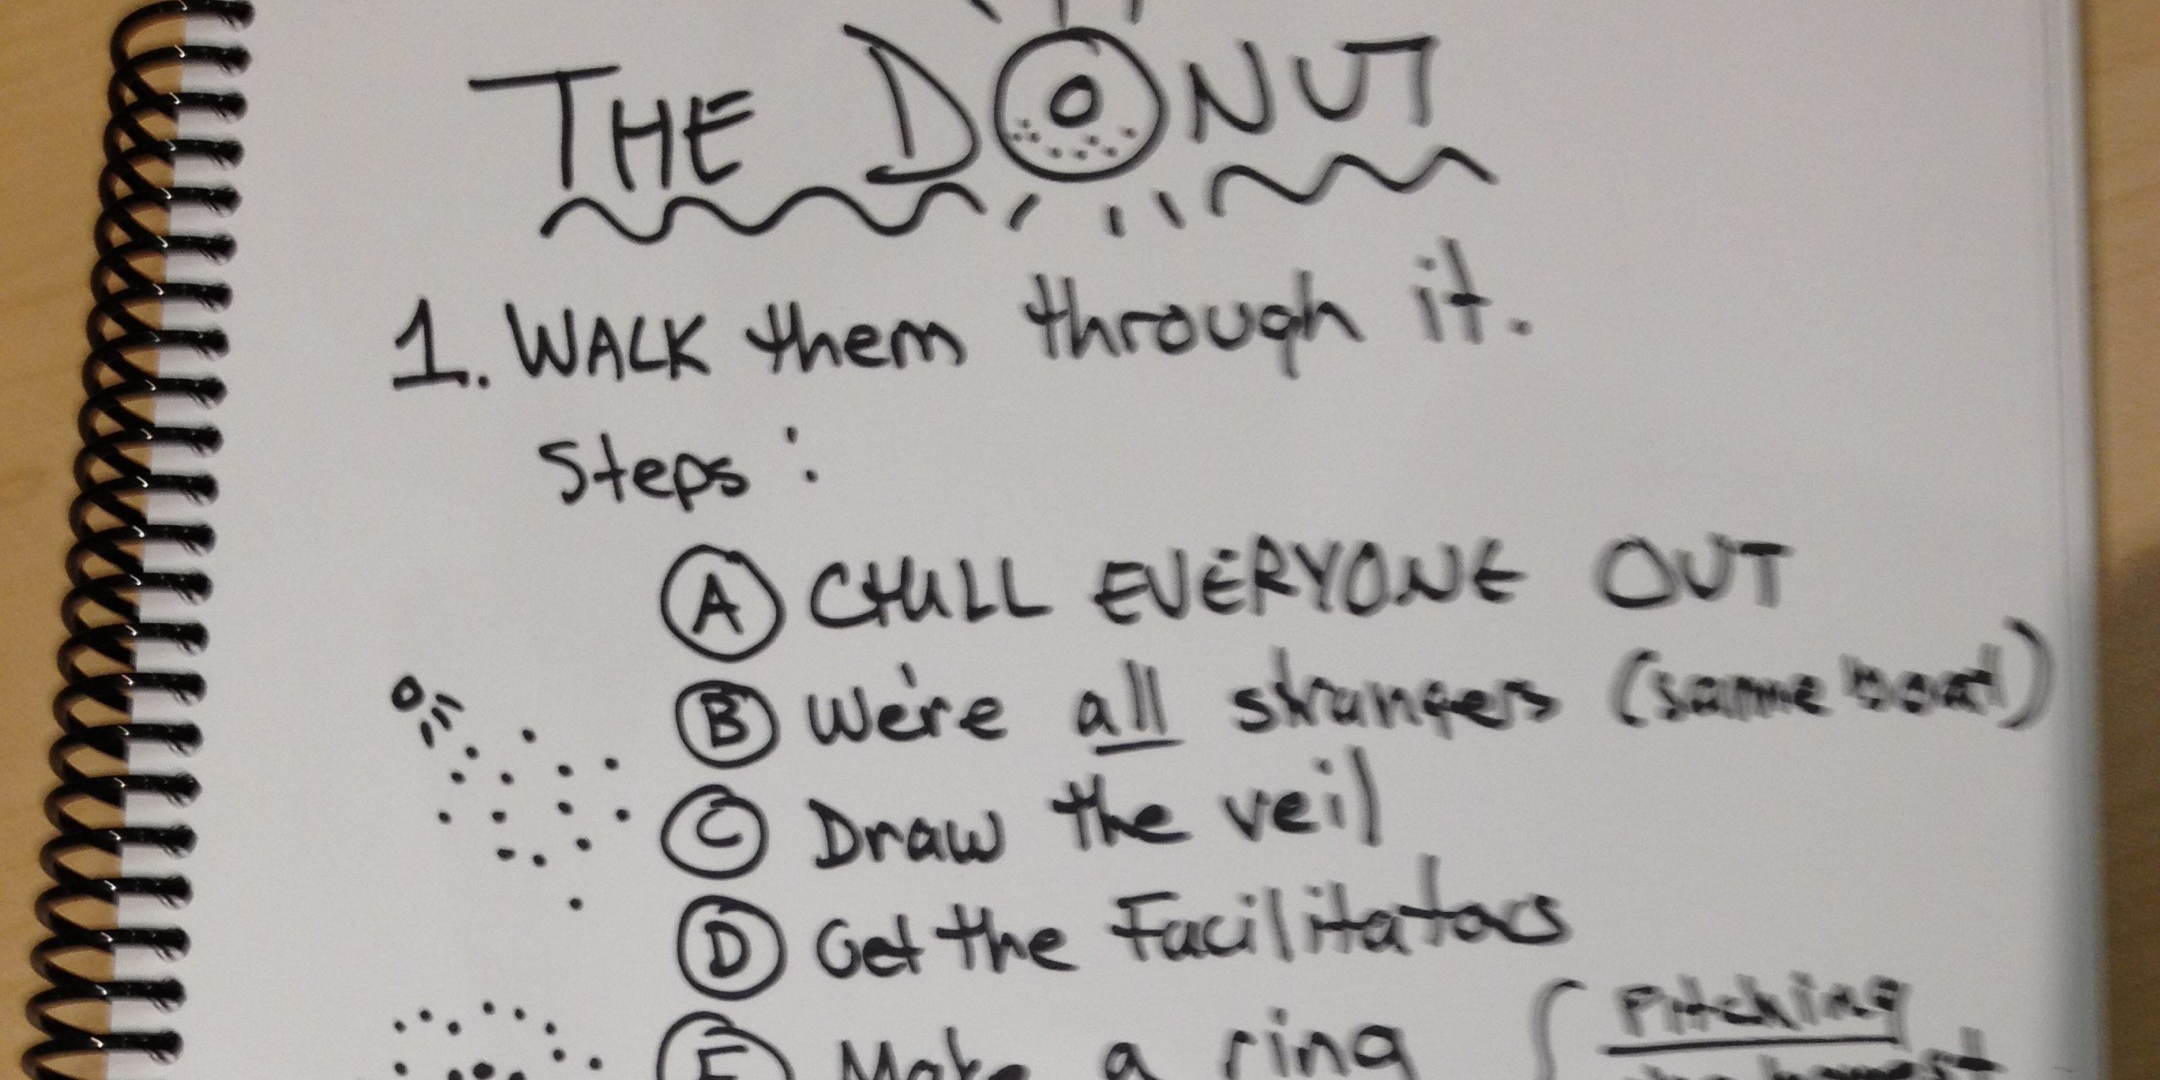 THE DONUT
1. WALK them through it.
Steps:
A CHILL EVERYONE OUT
B We're all strangers (same boat)
C Draw the veil
D Get the Facilitators
E Make a ring { Pitching